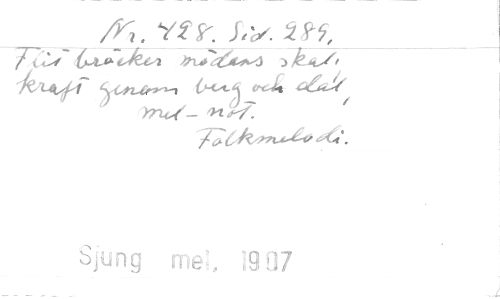 Nr. 428. Sid. 289.
Flit bräcker mödans skal,
kraft genom berg och dal,
mel-not.
Folkmelodi.
Sjung mel, 1907